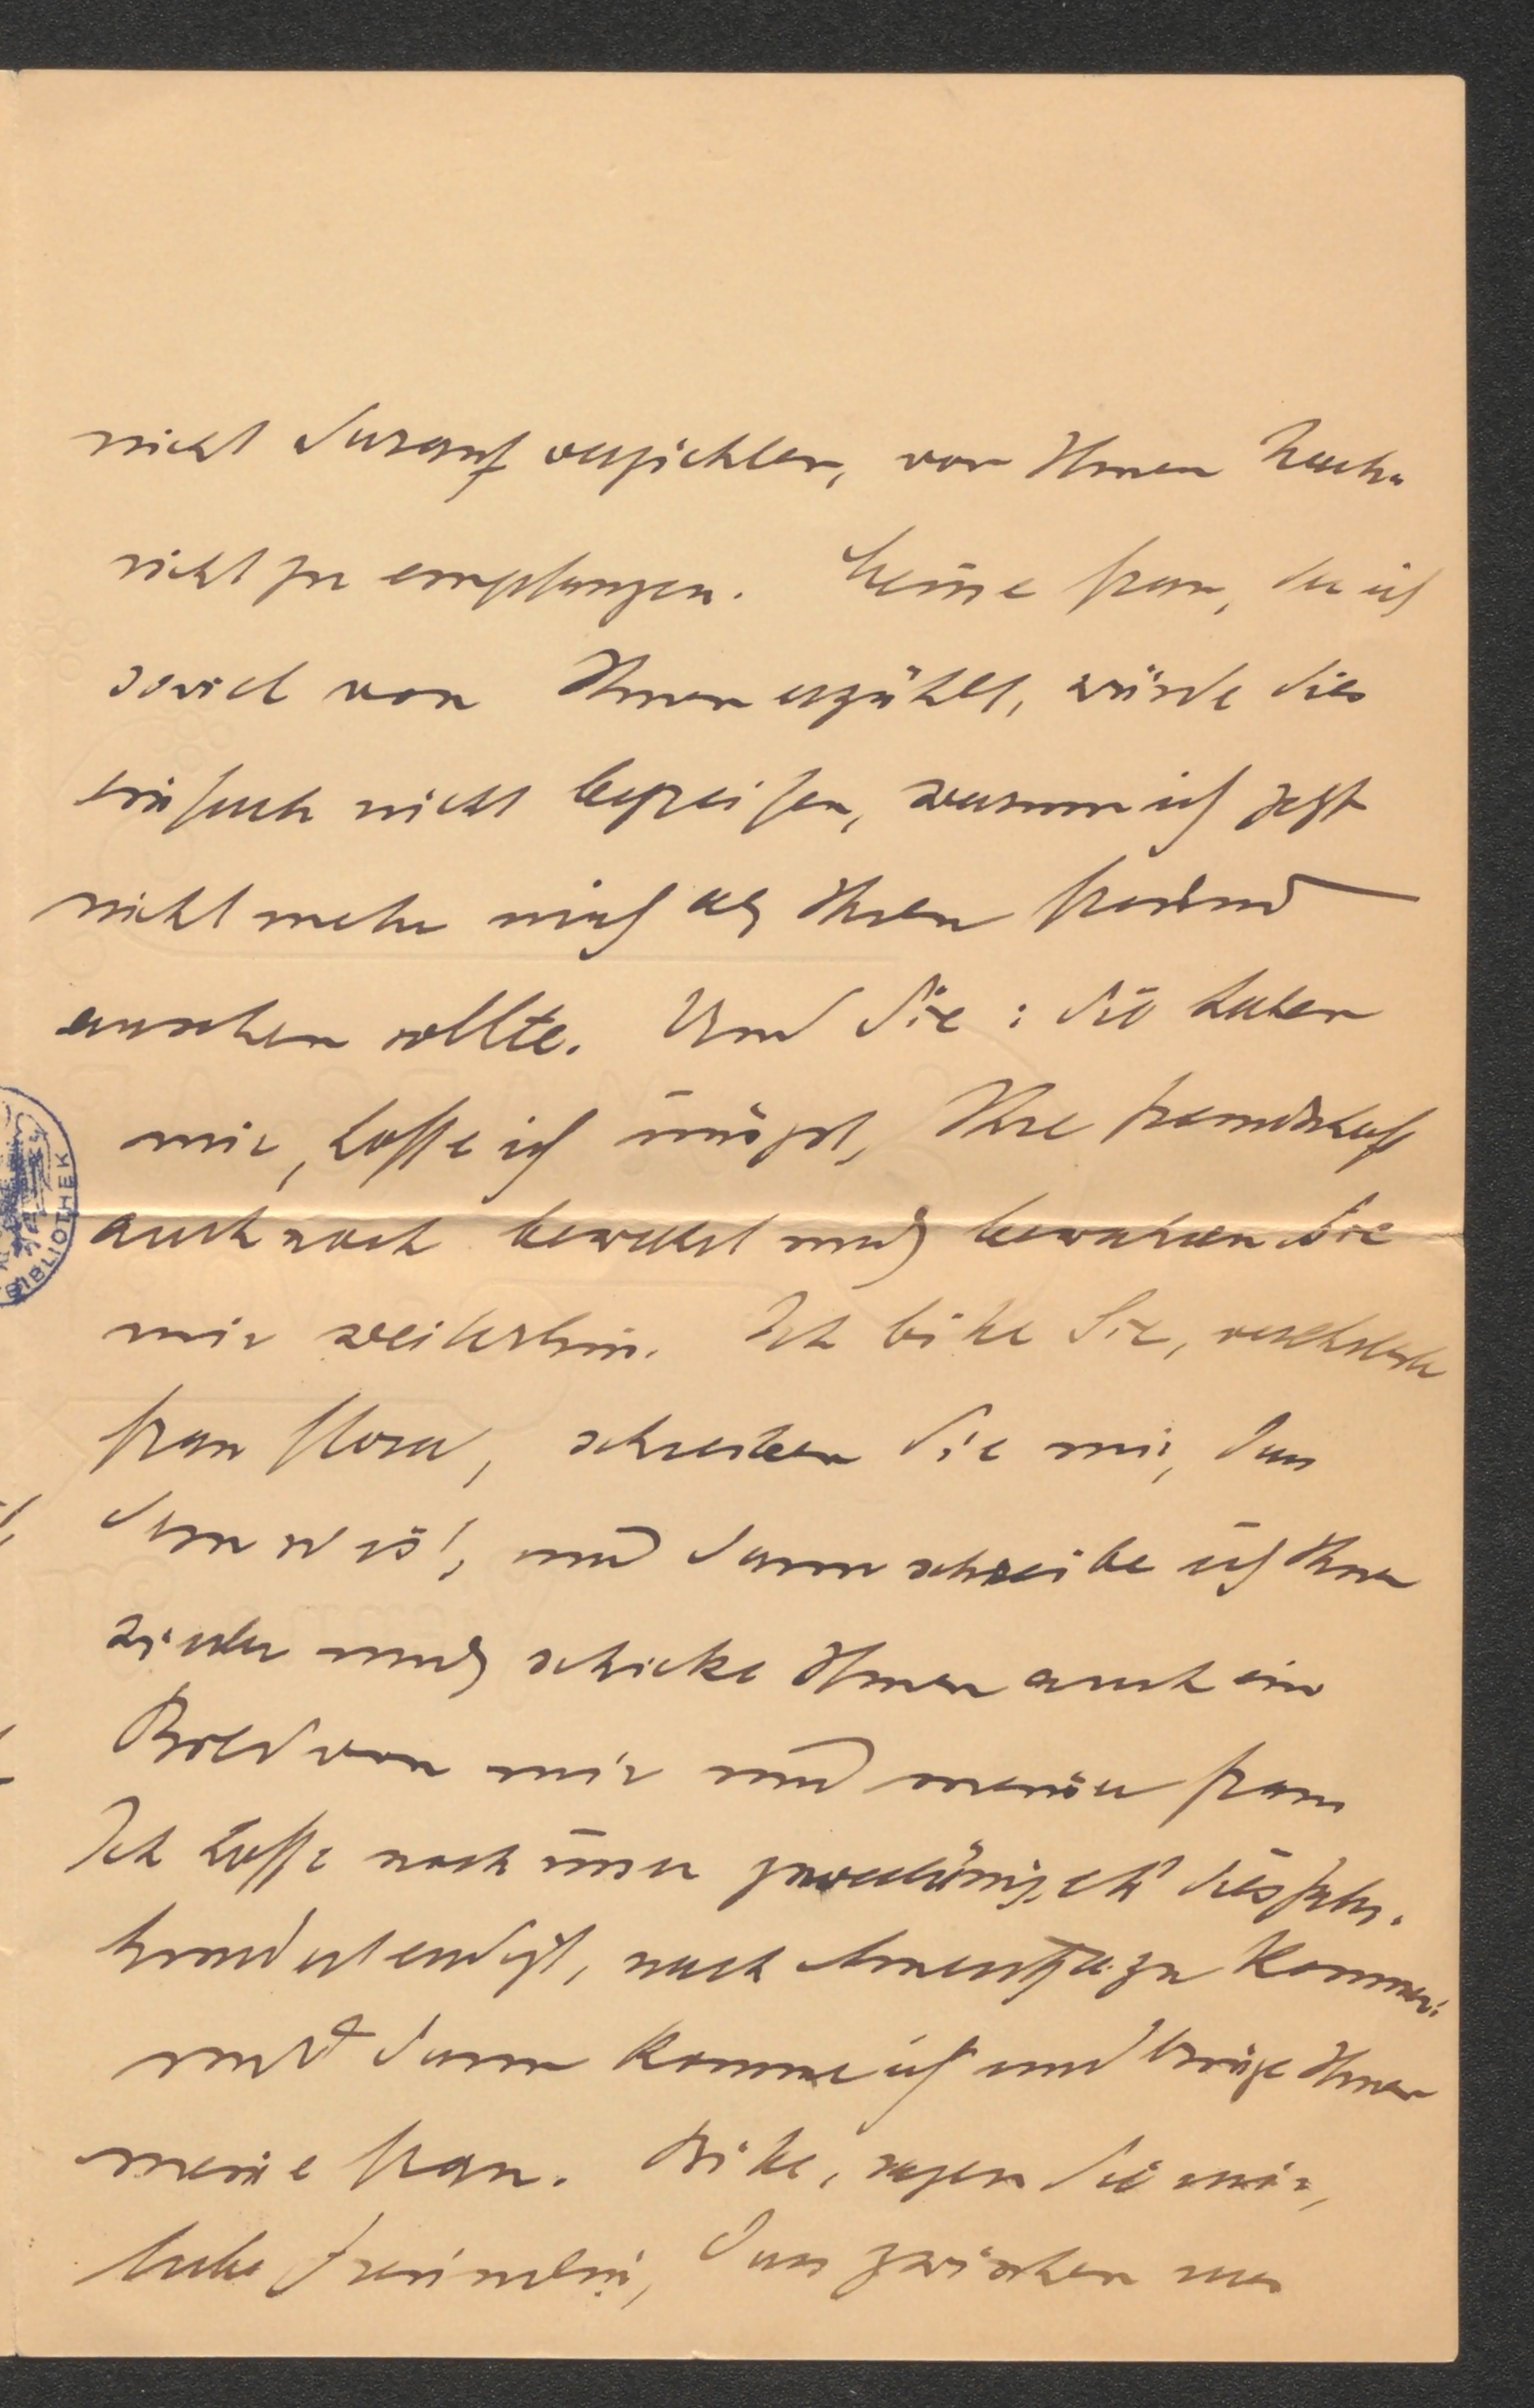 nicht darauf verzichten, von Ihnen Nach-
richt zu empfangen. Meine Frau, der ich
soviel von Ihnen erzählt, würde dies
einfach nicht begreifen, warum ich jetzt
nicht mehr mich als Ihren Freund
ansehen sollte. Und Sie: Sie haben
mir, hoffe ich innigst, Ihre Freundschaft
auch noch bewahrt und bewahren Sie
mir weiterhin. Ich bitte Sie, verehrteste
Frau Flora, schreiben Sie mir, dass
dem so ist, und dann schreibe ich Ihnen
wieder und schicke Ihnen auch ein
Bild von mir und meiner Frau
Ich hoffe noch dies Jahr-
hundert endigt, nach zu kommen:
und dann komme ich und bringe Ihnen
meine Frau. Bitte, sagen Sie mir,
liebe Freundin, dass zwischen uns
BIBLIOTHEK